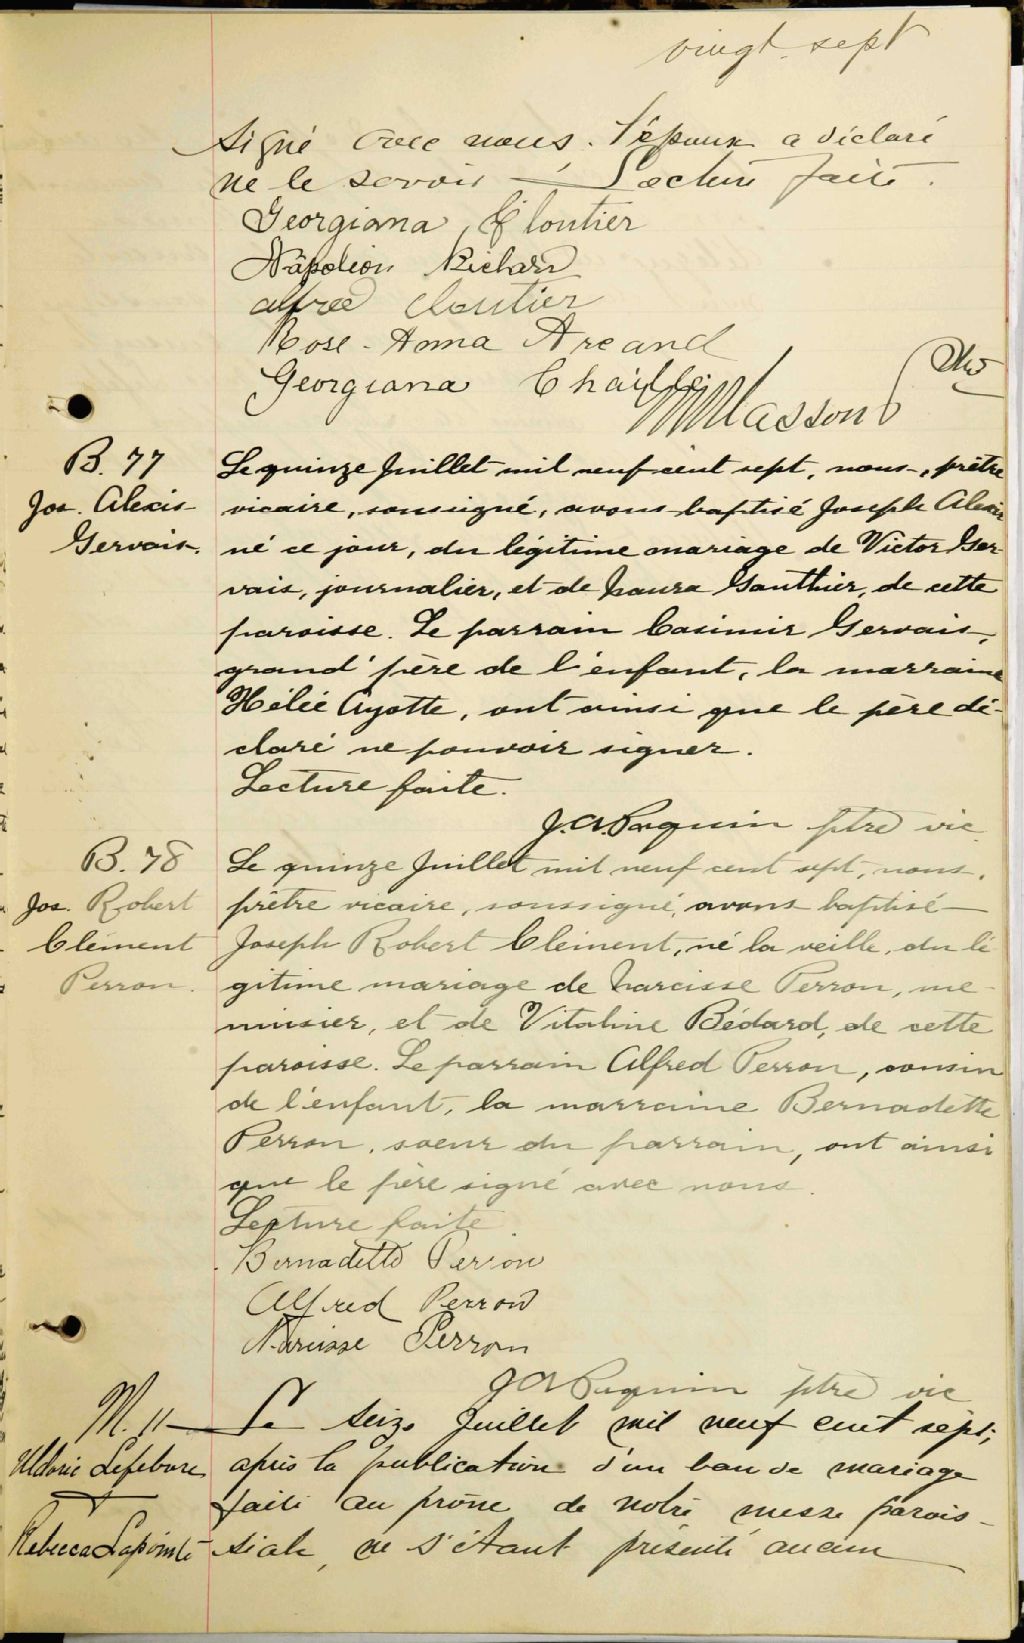 vingt-sept
signé avec nous. l'époux a déclaré
ne le savoir — Lecture faite.
Georgiana Cloutier
Napoléon Richard
alfred Cloutier
Rose-Anna Arcand
Georgiana Chaillé
Masson
B. 77
Jos. Alexis
Gervais.
Le quinze Juillet mil neuf cent sept, nous, prêtre
vicaire, soussigné, avons baptisé Joseph Alexis
né ce jour, du légitime mariage de Victor Ger-
vais, journalier, et de Laura Gauthier, de cette
paroisse. Le parrain Casimir Gervais,
grand'père de l'enfant, la marraine
Hélée Ayotte, ont ainsi que le père dé-
claré ne pouvoir signer.
Lecture faite.
J.A. Paquin ptre vic
B. 78
Jos. Robert
Clément
Perron.
Le quinze Juillet mil neuf cent sept, nous,
prêtre vicaire, soussigné, avons baptisé
Joseph Robert Clément, né la veille, du lé
gitime mariage de Narcisse Perron, me-
nuisier, et de Vitaline Bédard, de cette
paroisse. Le parrain Alfred Perron, cousin
de l'enfant, la marraine Bernadette
Perron, soeur du parrain, ont ainsi
que le père signé avec nous.
Lecture faite
Bernadette Perron
Alfred Perron
Narcisse Perron
J A Paquin ptre vic
M. 11
Uldoric Lefebvre
Rebecca Lapointe
Le seize Juillet mil neuf cent sept,
après la publication d'un ban de mariage
faite au prône de notre messe parois-
siale, ne s'étant présenté aucun